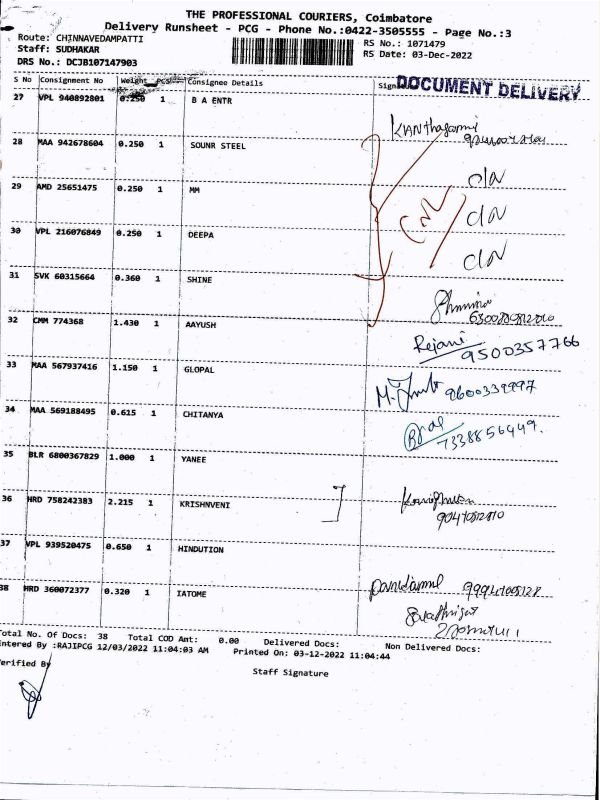 THE PROFESSIONAL COURIERS, Coimbatore
Delivery Runsheet - PCG - Phone No.:0422-3505555 - Page No.:3
Route: CHINNAVEDAMPATTI
RS No.: 1071479
Staff: SUDHAKAR
RS Date: 03-Dec-2022
DRS No.: DCJB107147903
S No Consignment No Weight PCS Consignee Details
DOCUMENT DELIVERY
27 VPL 940892801 0.250 1 B A ENTR
28 MAA 942678604 0.250 1 SOUNR STEEL
29 AMD 25651475 0.250 1 MM
30 VPL 216076849 0.250 1 DEEPA
31 SVK 60315664 0.360 1 SHINE
32 CMM 774368 1.430 1 AAYUSH
Rejani 9500357766
33 MAA 567937416 1.150 1 GLOPAL
9600339997
34 MAA 569188495 0.615 1 CHITANYA
7338856449.
35 BLR 6800367829 1.000 1 YANEE
36 HRD 758242383 2.215 1 KRISHNVENI
37 VPL 939520475 0.650 1 HINDUTION
38 HRD 360072377 0.320 1 IATOME
Total No. Of Docs: 38 Total COD Amt: 0.00 Delivered Docs: Non Delivered Docs:
Entered By :RAJIPCG 12/03/2022 11:04:03 AM Printed On: 03-12-2022 11:04:44
Verified By
Staff Signature